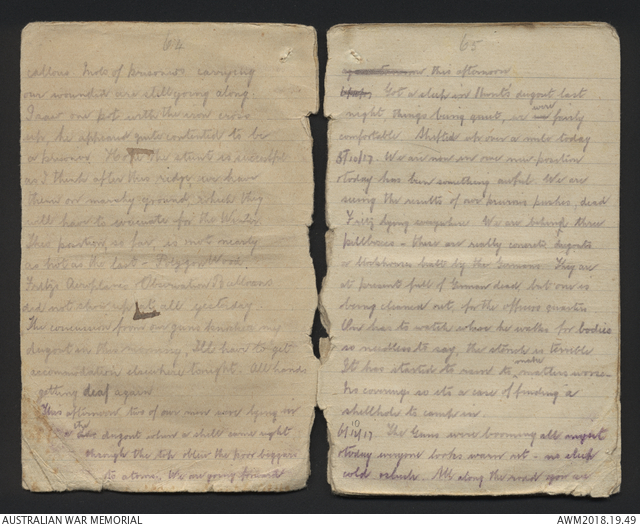 64
callous. Mobs of prisoners carrying
our wounded are still going along.
I saw one pot with the iron cross
up, he appeared quite contented to be
a prisoner. Hope the stunt is successful
as I think after this ridge, we have
them on marshy ground, which they
will have to evacuate for the Winter.
This position, so far, is not nearly
as hot as the last - Pozzie Wood.
Fritz's Airoplanes Observation Balloons
did not show up at all yesterday.
The concussion from our guns my
dugout in this morning, I'll have to get
accomodation elsewhere tonight. All hands
getting deaf again
This afternoon, two of our men were lying in
dugout when a shell came right
through the top blew the poor beggars
to atoms. We are going forward
65
this afternoon
Got a sleep in Hunt's dugout last
night, things being quiet, we were fairly
comfortable. Shifted up over a mile today
5/10/17. We are now in our new position
today has been something awful. We are
seeing the results of our previous pushes, dead
Fritz lying everywhere. We are behind three
pillboxes - these are really concrete dugouts
& blockhouses built by the Germans. They are
at present full of German dead, but one is
being cleaned out, for the officers quarters
One has to watch where he walks for bodies
so needless to say, the stench is terrible
It has started to rain to make matters worse.
No coverings so its a case of finding a
shellhole to camp in.
6/10/17. The Guns were booming all night
today everyone looks worn out - no sleep
cold All along the road you see
AUSTRALIAN WAR MEMORIAL
AWM2018.19.49